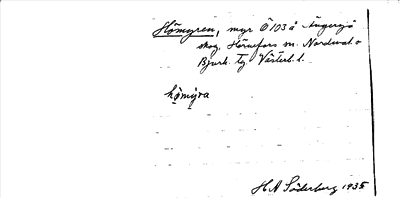 Hömyren, myr Ö 103 å Ängersjö
skog, Hörnefors sn. Nordmal. o
Bjurh. tg Västerb. l.
hömýra
H A Söderberg 1935